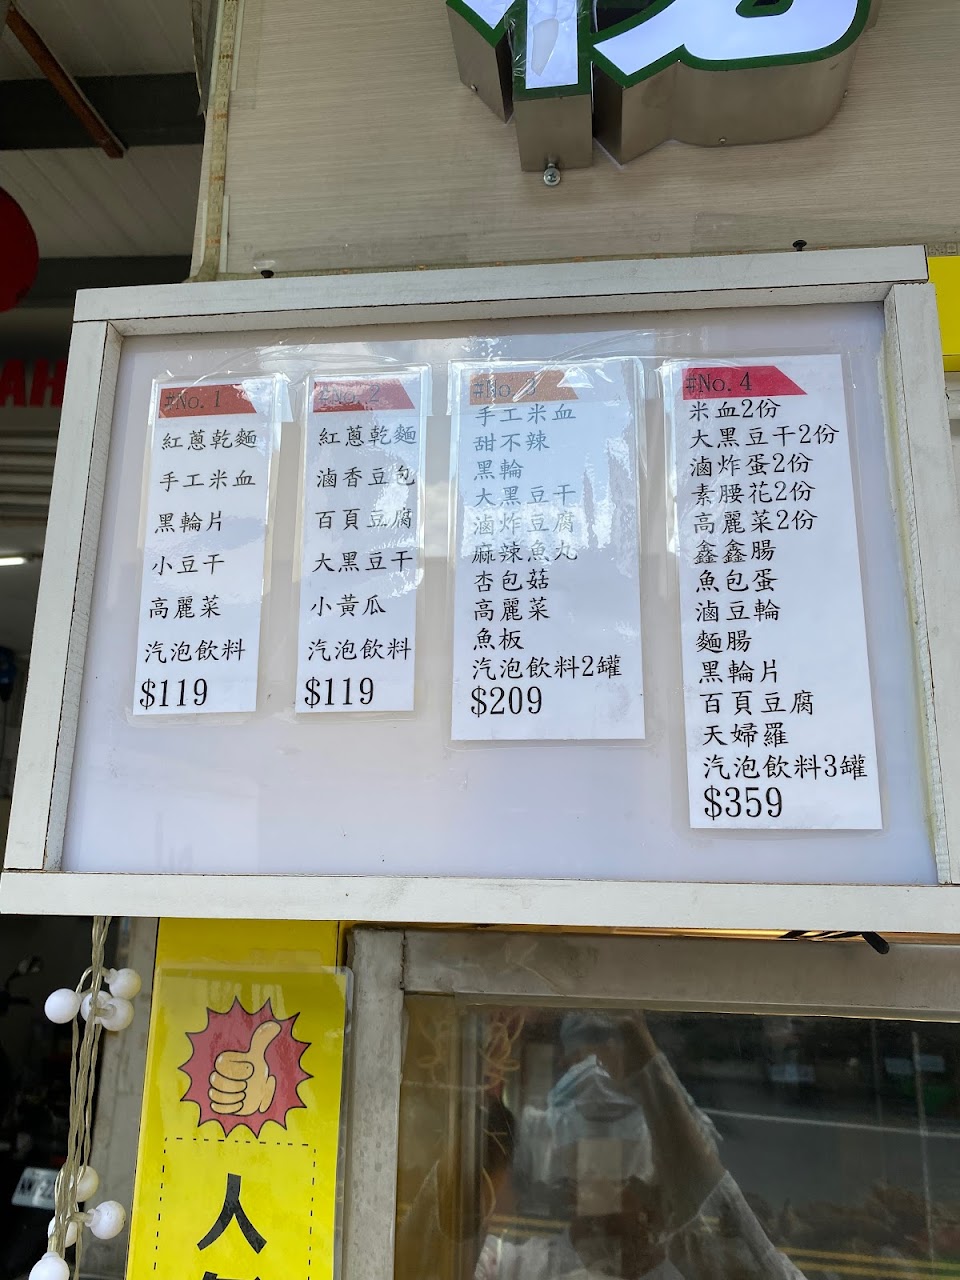 #No.1
紅蔥乾麵
手工米血
黑輪片
小豆干
高麗菜
汽泡飲料
$119
#No.2
紅蔥乾麵
滷香豆包
百頁豆腐
大黑豆干
小黃瓜
汽泡飲料
$119
#No.3
手工米血
甜不辣
黑輪
大黑豆干
滷炸豆腐
麻辣魚丸
杏包菇
高麗菜
魚板
汽泡飲料2罐
$209
#No.4
米血2份
大黑豆干2份
滷炸蛋2份
素腰花2份
高麗菜2份
鑫鑫腸
魚包蛋
滷豆輪
麵腸
黑輪片
百頁豆腐
天婦羅
汽泡飲料3罐
$359
AH
人